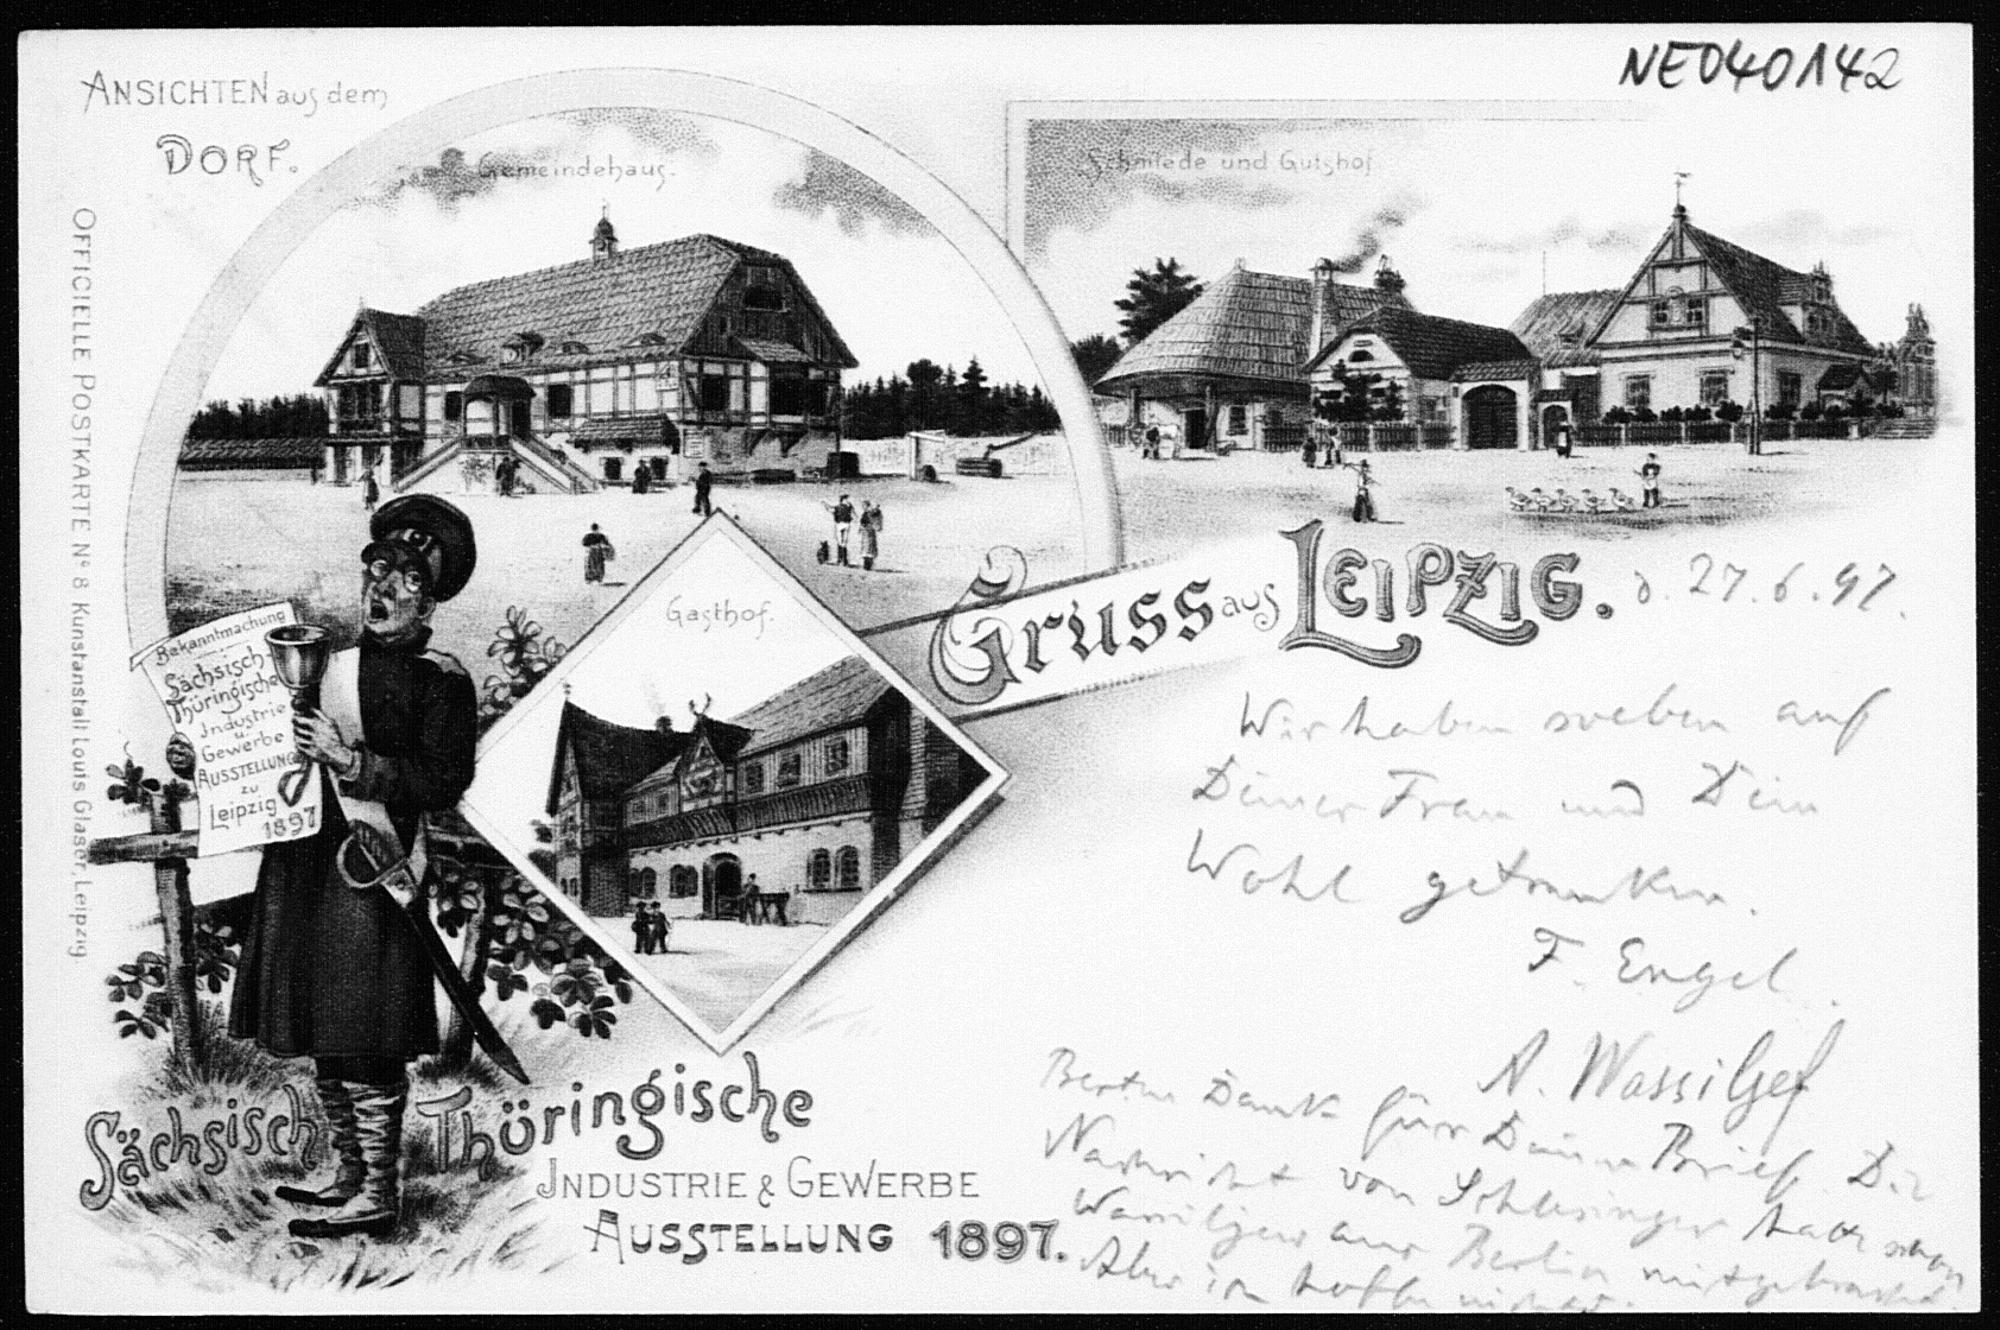 NE040142
ANSICHTEN aus dem
DORF.
Gemeindehaus.
Schmiede und Gutshof
OFFICIELLE POSTKARTE No 8 Kunstanstalt Louis Glaser, Leipzig
Gasthof.
Gruss aus LEIPZIG.
d. 27.6.97.
Bekanntmachung
Sächsisch-
Thüringische
Industrie
u.
Gewerbe
AUSSTELLUNG
zu
Leipzig
1897
Wir haben soeben auf
Deiner Frau und Dein
Wohl getrunken.
F. Engel.
A. Wassiljef
Besten Dank für Deinen Brief. Die
Nachricht von Schlesinger hatte schon
Wassiljew aus Berlin mitgebracht.
Aber ich hoffe
Sächsisch Thüringische
INDUSTRIE & GEWERBE
AUSSTELLUNG 1897.